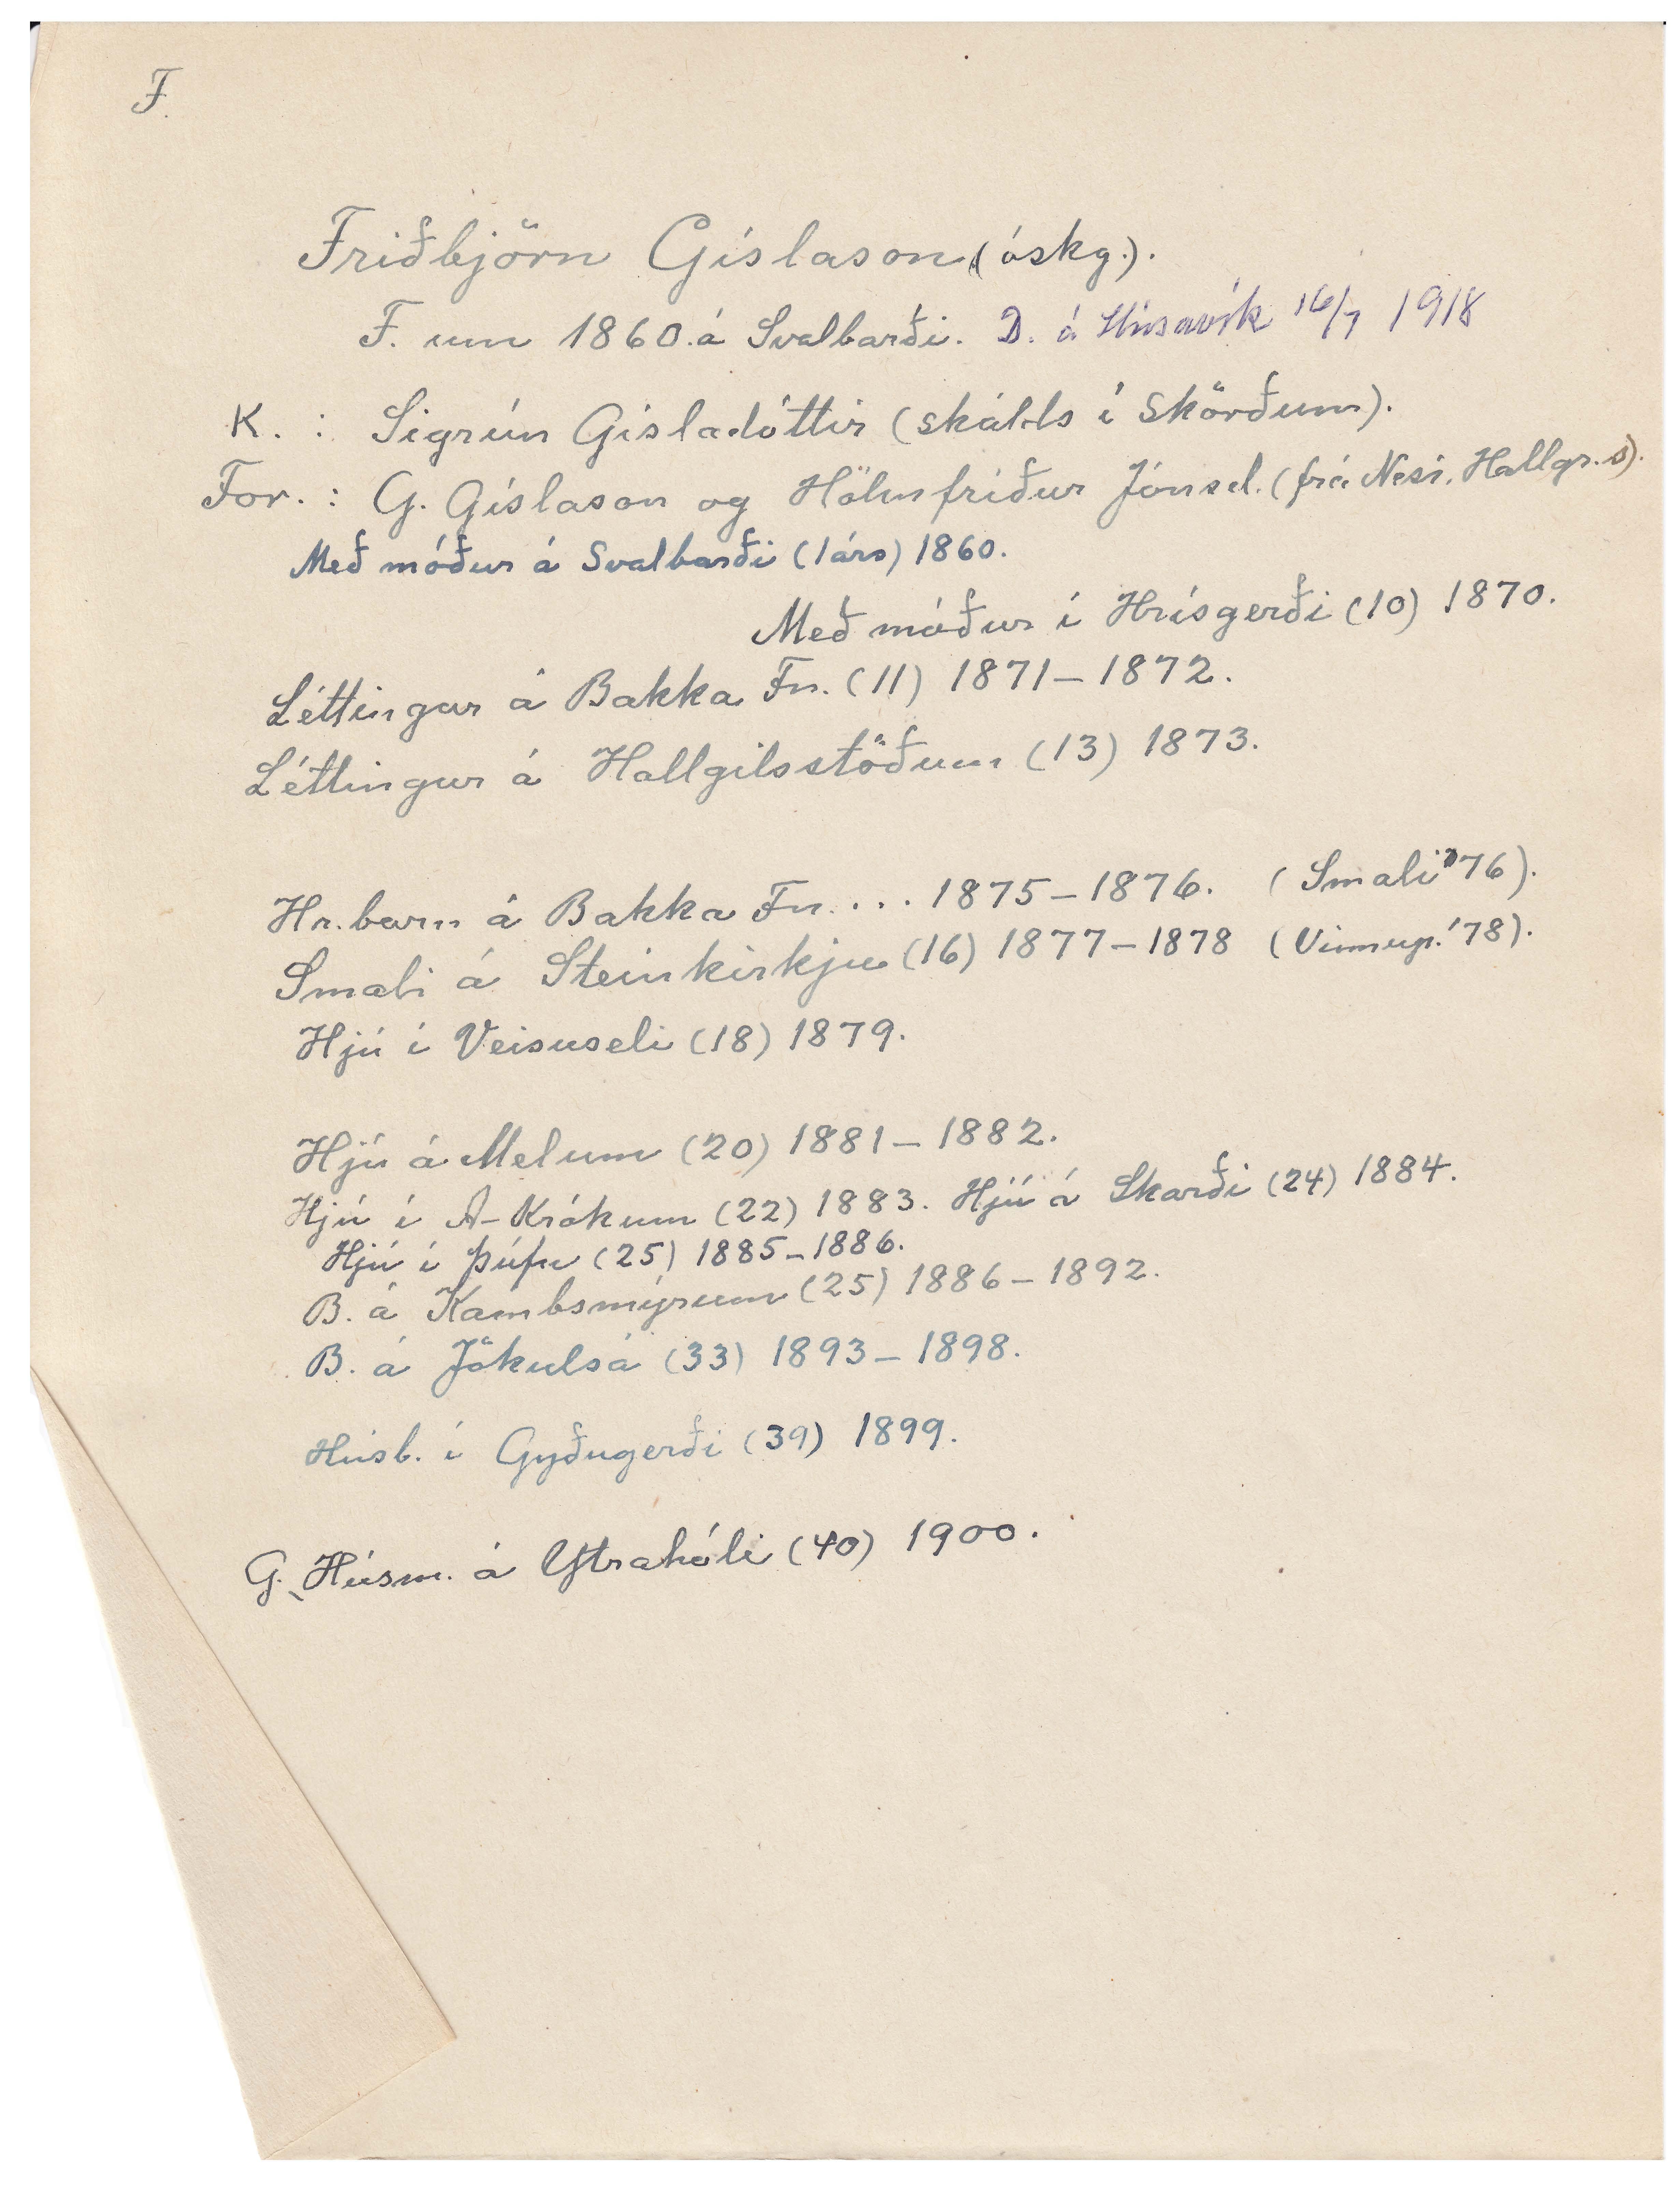 F.
Friðbjörn Gíslason (óskg.).
F. um 1860 á Svalbarði. D. á Húsavík 16/7 1918
K. : Sigrún Gísladóttir (skálds í Skörðum).
For. : G. Gíslason og Hólmfríður Jónsd. (frá Nesi, Hallgr.s).
Með móður á Svalbarði (1árs) 1860.
Með móður í Hrísgerði (10) 1870.
Léttingur á Bakka Fn. (11) 1871–1872.
Léttingur á Hallgilsstöðum (13) 1873.
Hr.barn á Bakka Fn. ... 1875–1876. (Smali '76).
Smali á Steinkirkju (16) 1877–1878 (Vinnup. '78).
Hjú í Veisuseli (18) 1879.
Hjú á Melum (20) 1881–1882.
Hjú í A-Krókum (22) 1883. Hjú á Skarði (24) 1884.
Hjú í Þúfu (25) 1885–1886.
B. á Kambsmýrum (25) 1886–1892.
B. á Jökulsá (33) 1893–1898.
Húsb. í Gyðugerði (39) 1899.
G. Húsm. á Ytrahóli (40) 1900.